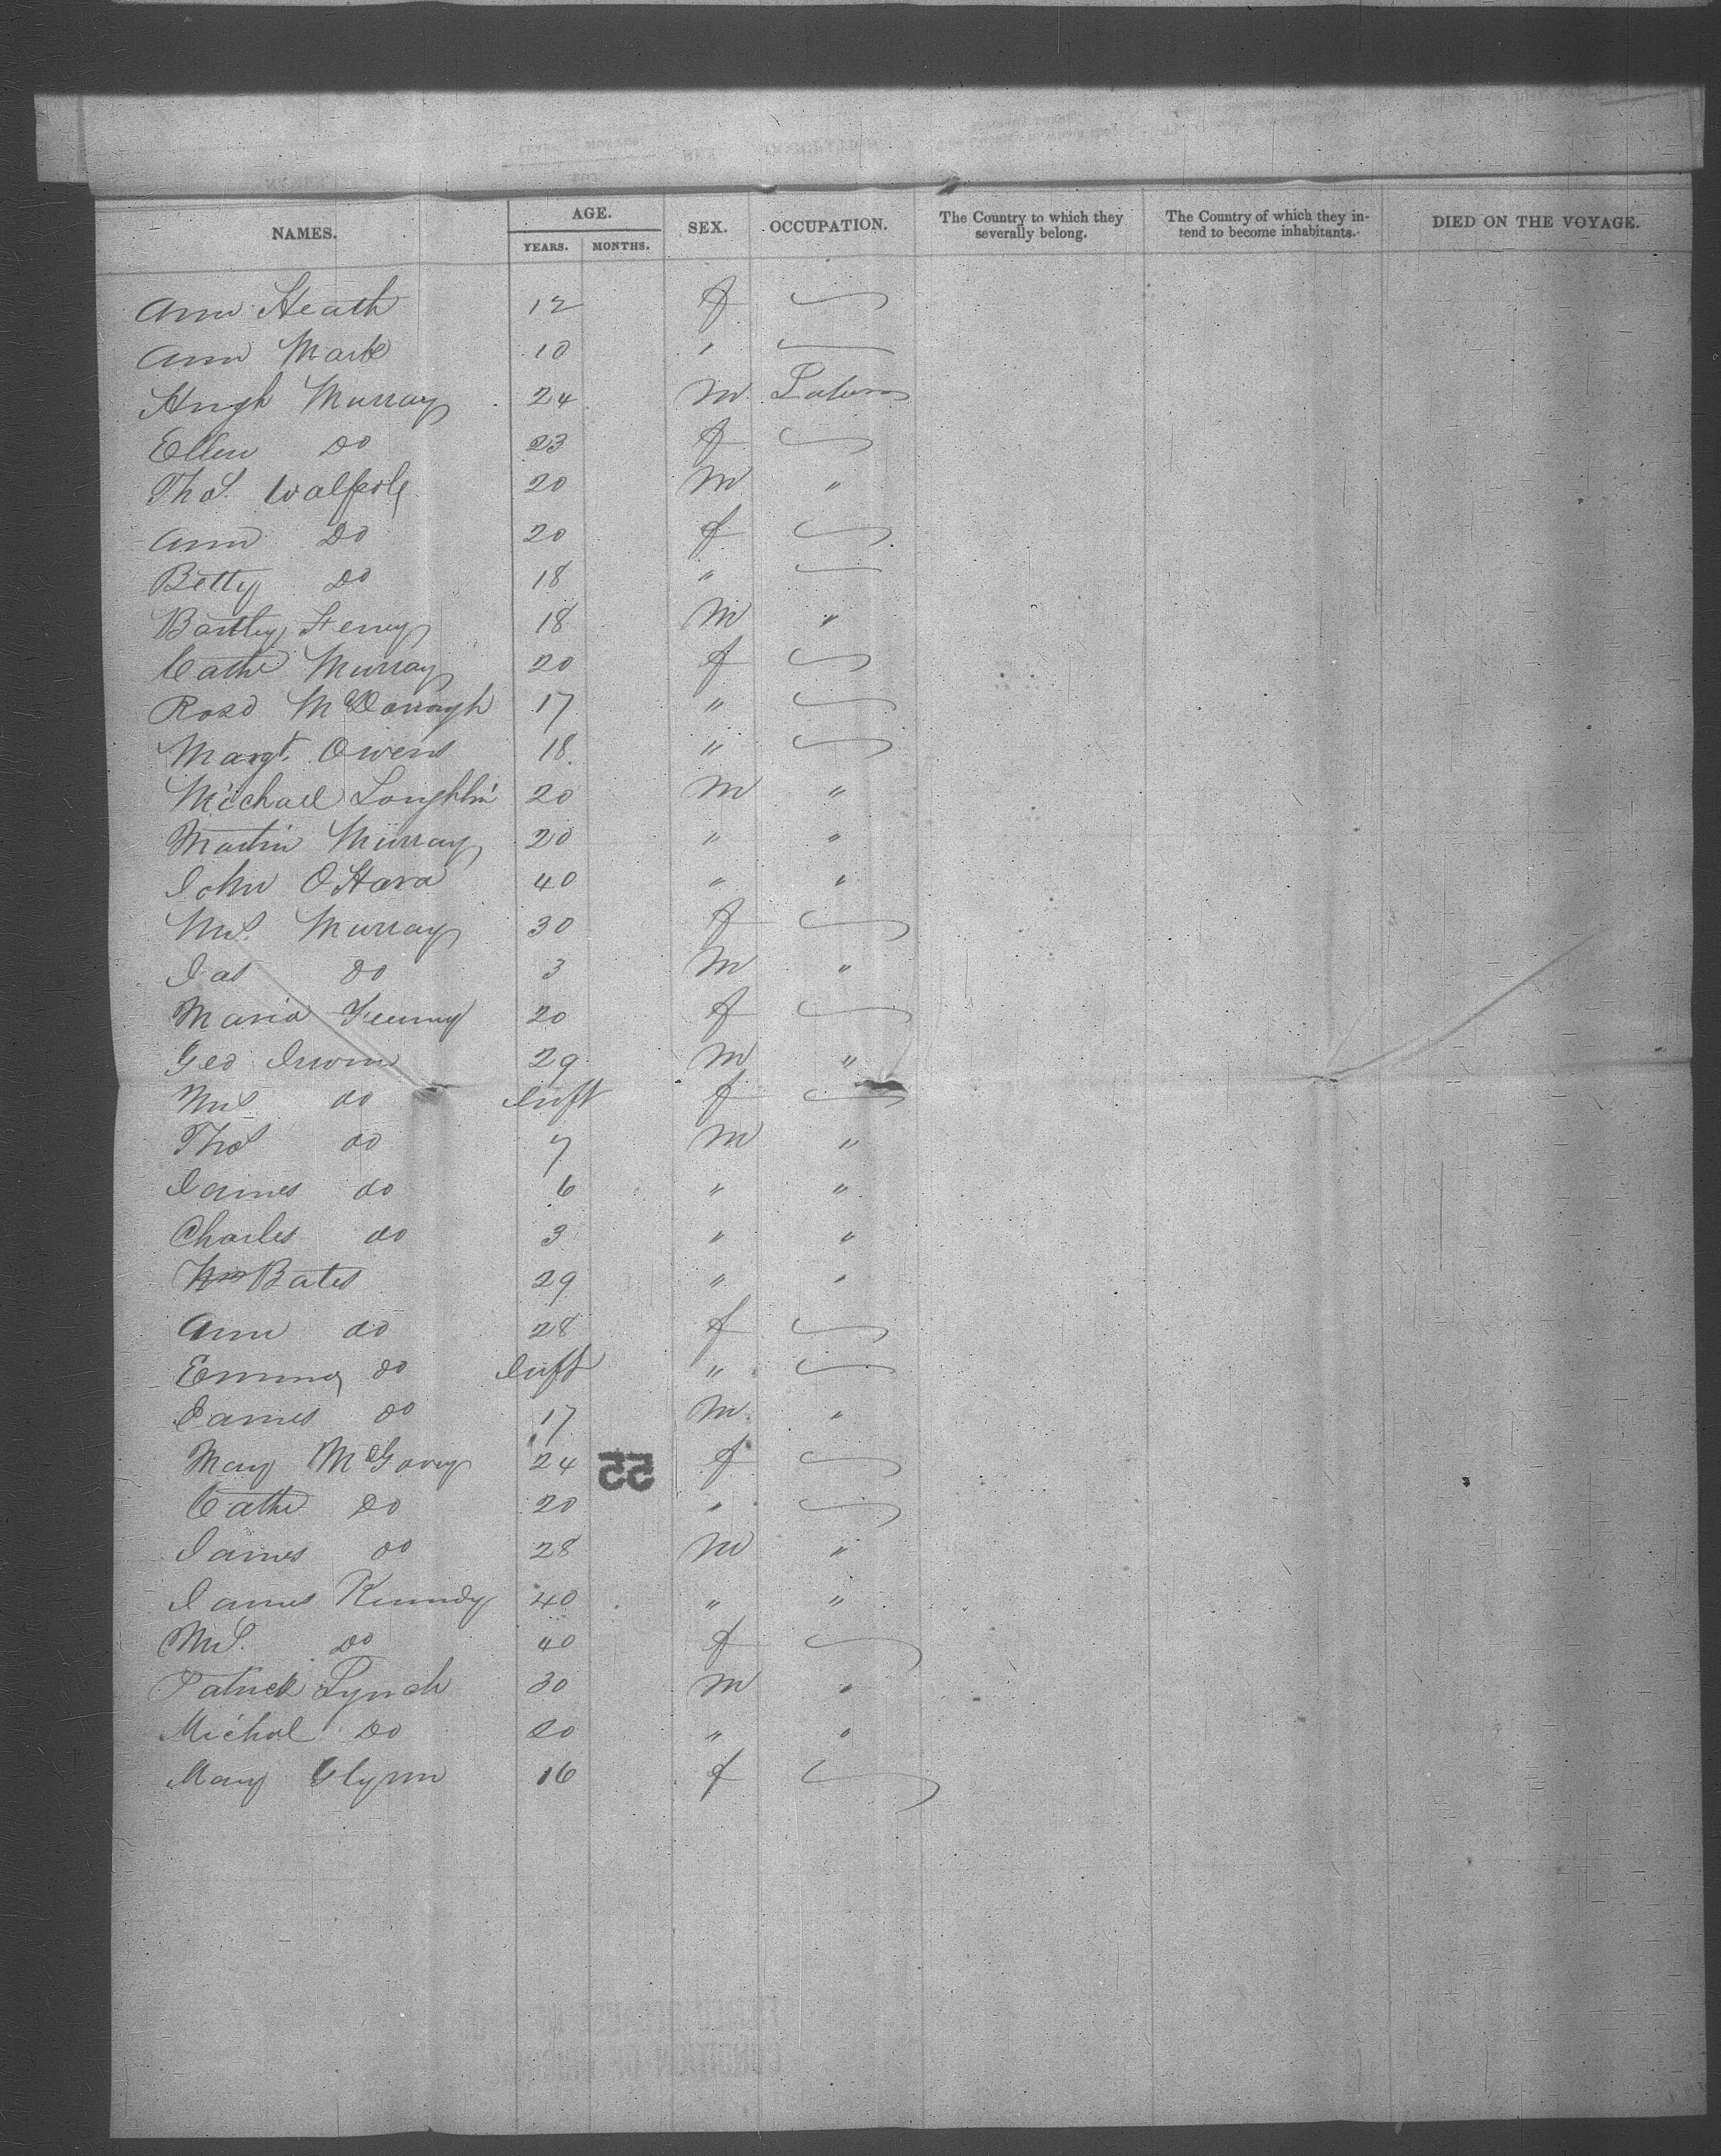 NAMES. AGE. SEX. OCCUPATION. The Country to which they severally belong. The Country of which they intend to become inhabitants. DIED ON THE VOYAGE.
YEARS. MONTHS.
Ann Heath 12 f
Ann Mark 10 "
Hugh Murray 24 M Labours
Ellen Do 23 f
Thos. Walpole 20 M "
Ann Do 20 f
Betty Do 18 "
Bartley Feney 18 M "
Cathe Murray 20 f
Rose McDonough 17 "
Margt. Owens 18 "
Michael Loughlin 20 M "
Martin Murray 20 " "
John O'Hara 40 " "
Mrs. Murray 30 f
Jas do 3 M "
Maria Feeney 20 f
Geo Irwin 29 M "
Mrs do Inft f
Thos do 7 M "
James do 6 " "
Charles do 3 " "
Wm Bates 29 " "
Ann do 28 f
Emma do Inft "
James do 17 M "
Mary McGovey 24 f
55
Cathe Do 20 "
James do 28 M "
James Kennedy 40 " "
Mrs. Do 40 f
Patrick Lynch 30 M "
Michal Do 20 " "
Mary Glynn 16 f